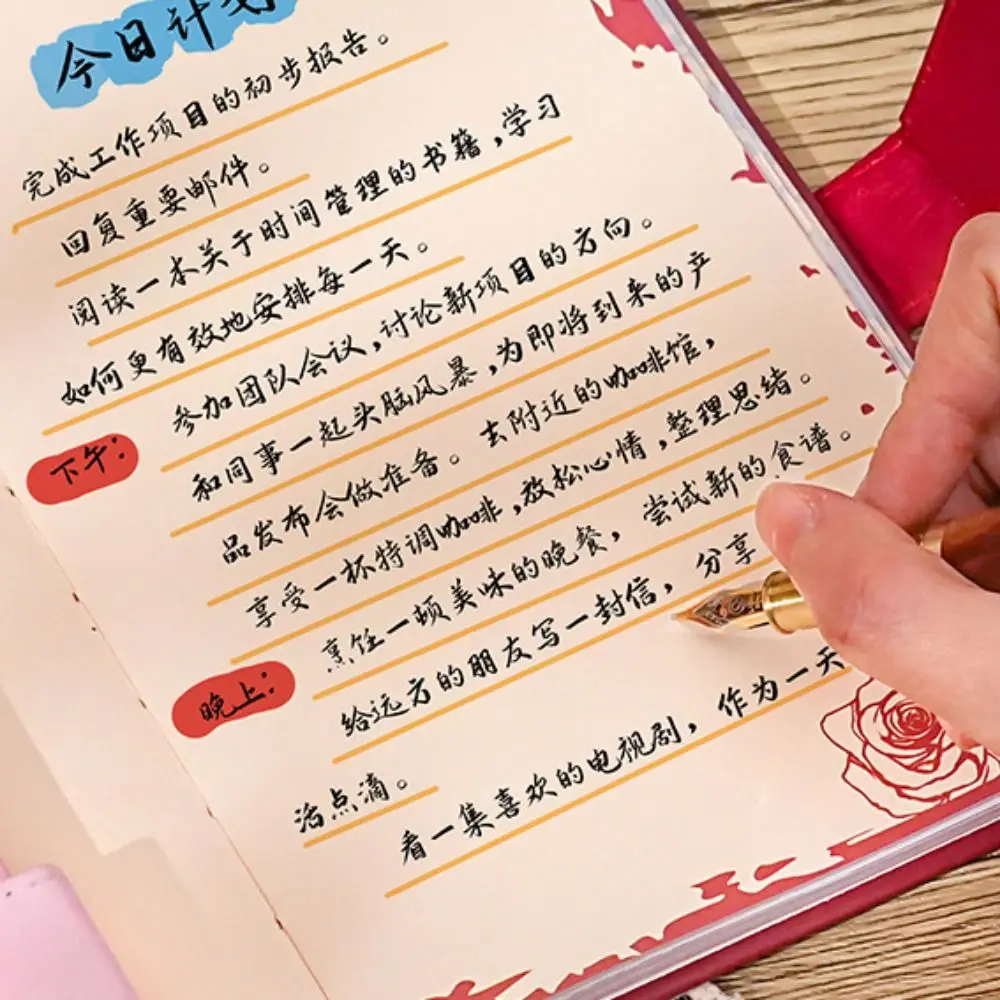 今日计划
完成工作项目的初步报告。
回复重要邮件。
阅读一本关于时间管理的书籍,学习
如何更有效地安排每一天。
下午:
参加团队会议,讨论新项目的方向。
和同事一起头脑风暴,为即将到来的产
品发布会做准备。去附近的咖啡馆,
享受一杯特调咖啡,放松心情,整理思绪。
晚上:
烹饪一顿美味的晚餐,尝试新的食谱。
给远方的朋友写一封信,分享
活点滴。
看一集喜欢的电视剧,作为一天